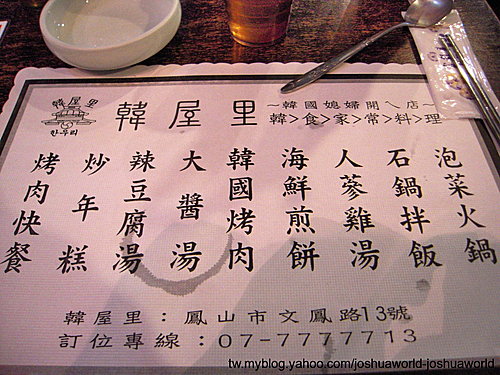 韓屋里
韓屋里
~韓國媳婦開ㄟ店~
韓>食>家>常>料>理
泡菜火鍋
石鍋拌飯
人蔘雞湯
海鮮煎餅
韓國烤肉
大醬湯
辣豆腐湯
炒年糕
烤肉快餐
韓屋里：鳳山市文鳳路13號
訂位專線：07-7777713
tw.myblog.yahoo.com/joshuaworld-joshuaworld